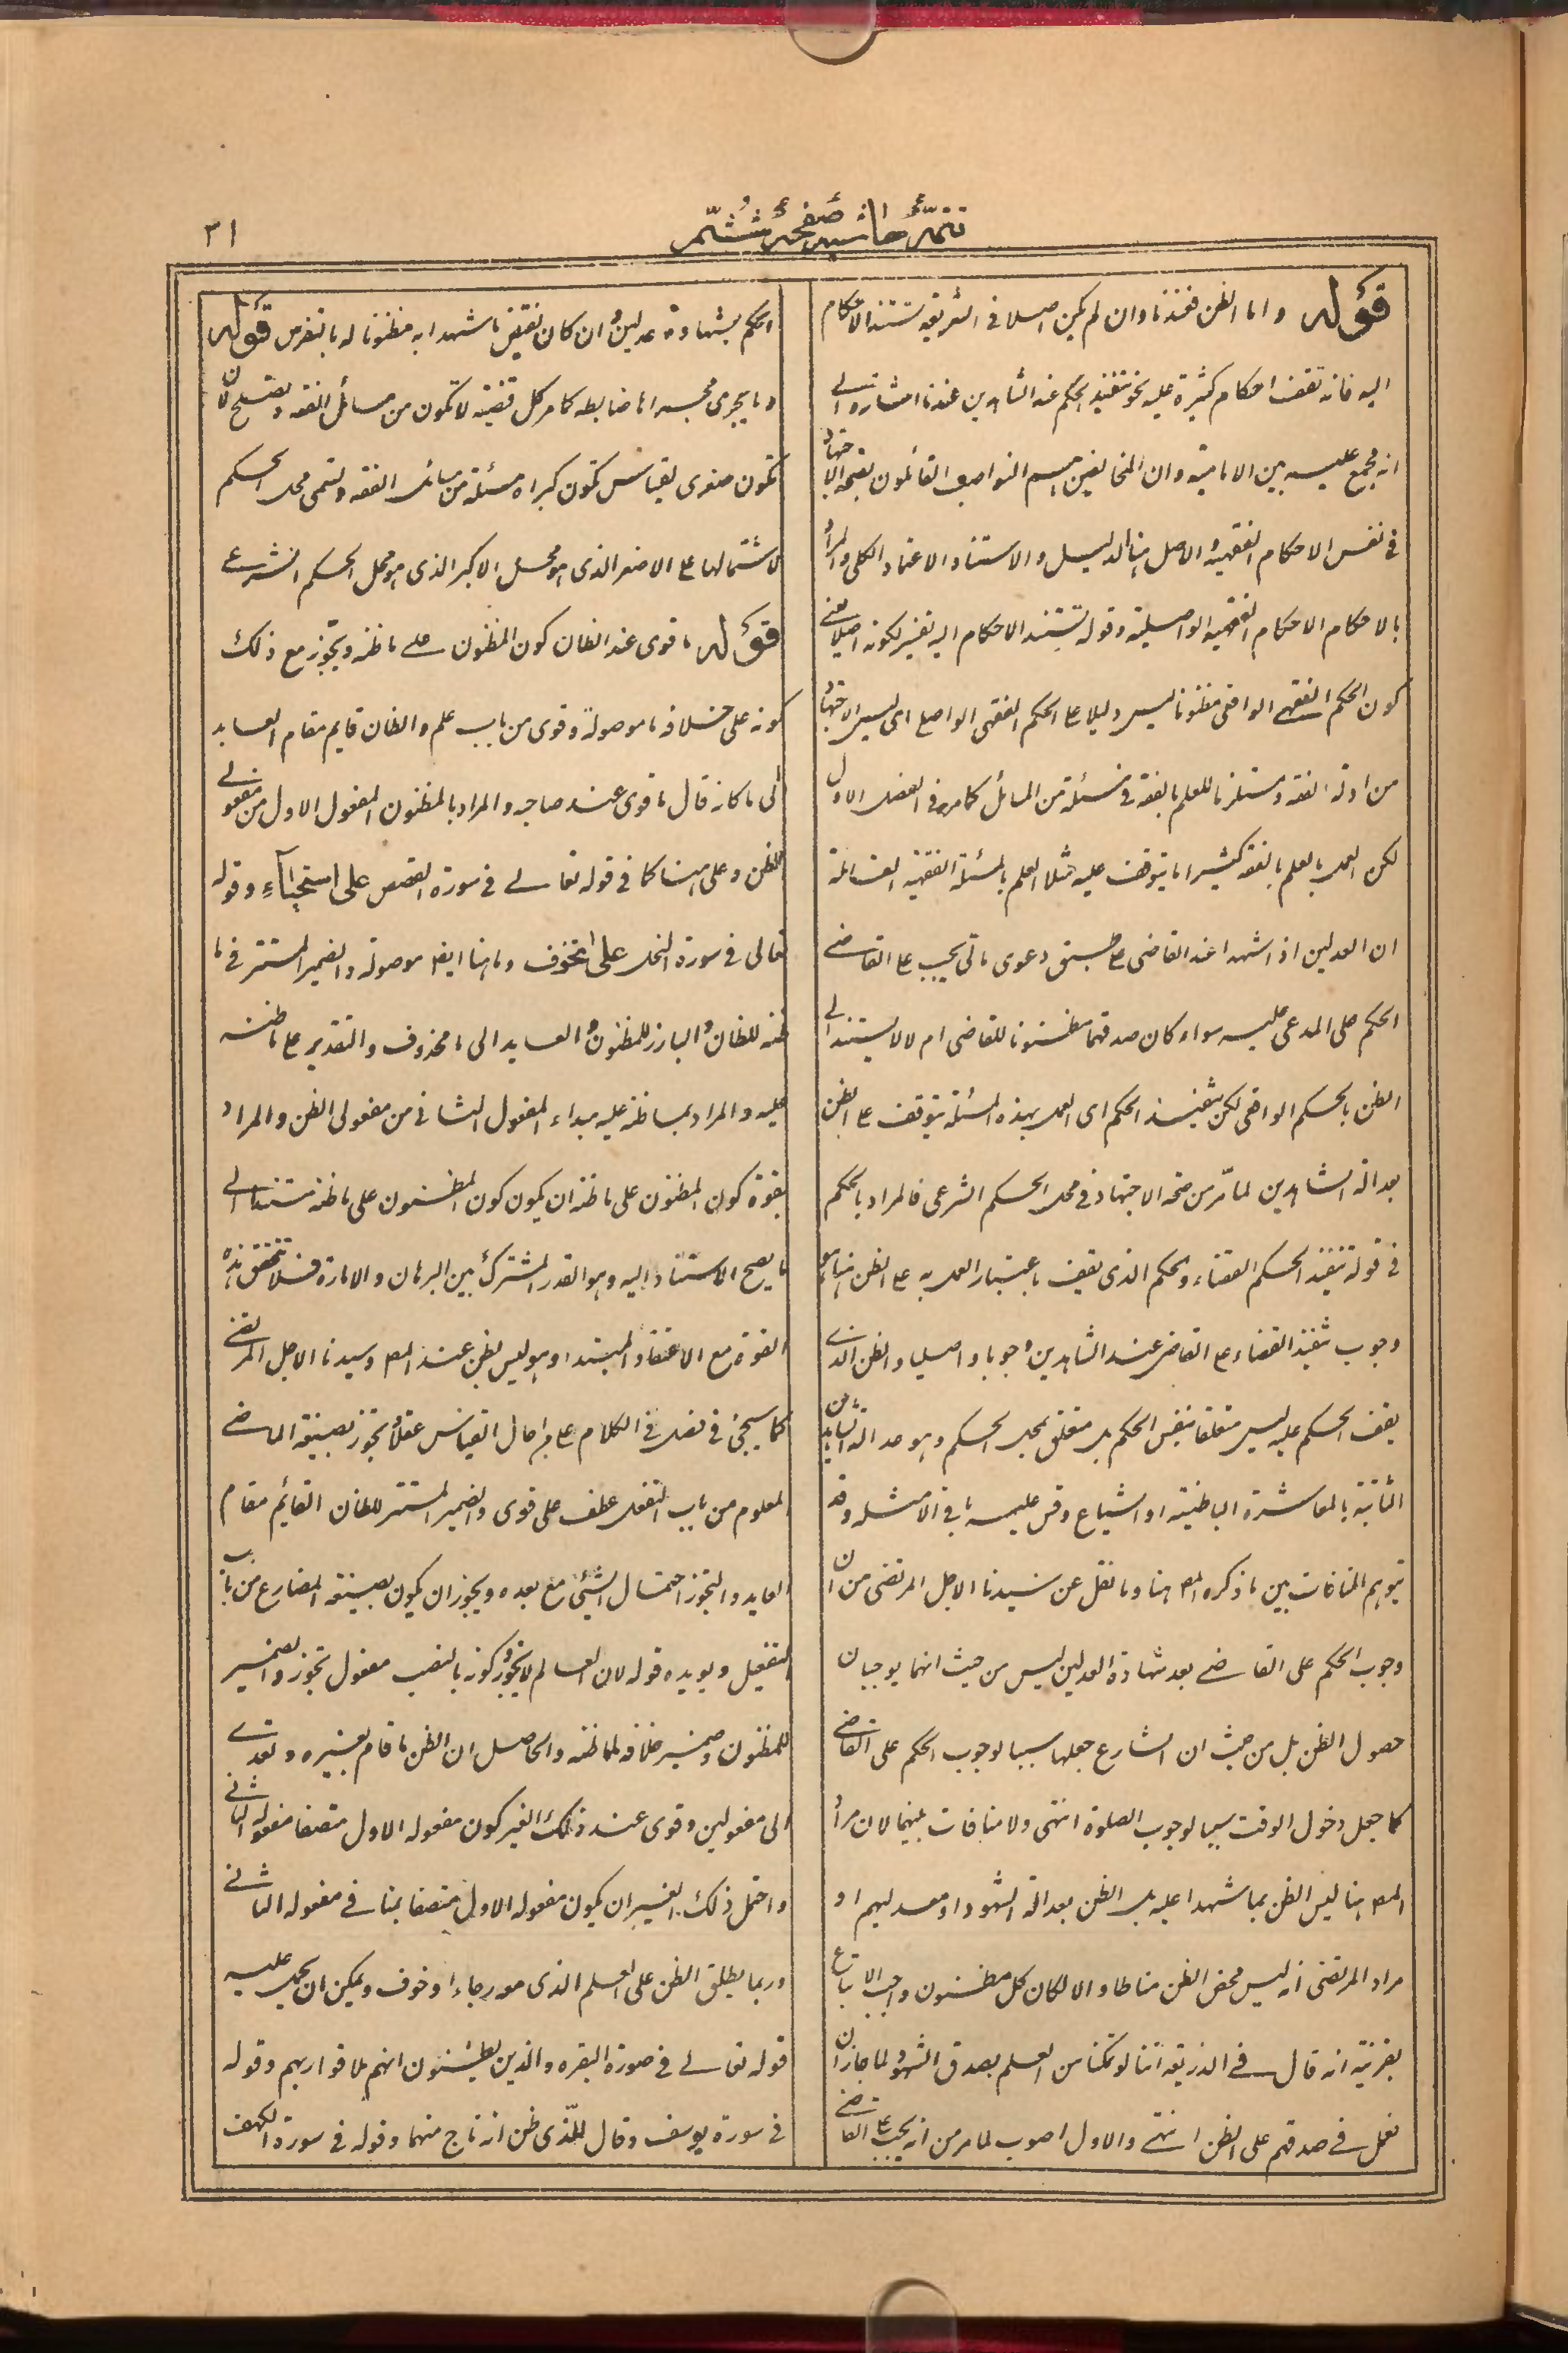 تتمّهٔ حاشیهٔ صفحهٔ ششّم
٣١
قوله واما الظن فعندنا وان لم يكن اصلا فى الشريعة تستند الاحكام
اليه فانه تقف احكام كثيرة عليه نحو تنفيذ الحكم عند الشاهدين عندنا اشارة الى
انه مجمع عليه بين الامامية وان المخالفين هم النواصب القائلون بصحة الاجتهاد
فى نفس الاحكام الفقهية والاصل هنا الدليل والاستناد الاعتماد الكلى والمراد
بالاحكام الاحكام الفقهية الواصلية وقوله تستند الاحكام اليه تفسير لكونه اصلا يعنى
كون الحكم الفقهى الواقعى مظنونا ليس دليلا على الحكم الفقهى الواصلى اى ليس الاجتهاد
من ادلة الفقه ومستلزما للعلم بالفقه فى مسئلة من المسائل كما مر فى الفصل الاول
لكن العمل بالعلم بالفقه كثيرا ما يتوقف عليه مثلا العلم بالمسئلة الفقهية القائلة
ان العدلين اذا شهدا عند القاضى على طبق دعوى مالى يجب على القاضى
الحكم على المدعى عليه سواء كان صدقهما مظنونا للقاضى ام لا لا يستند الى
الظن بالحكم الواقعى لكن تنفيذ الحكم اى العمل بهذه المسئلة يتوقف على الظن
بعدالة الشاهدين لما مرّ من صحة الاجتهاد فى محل الحكم الشرعى فالمراد بالحكم
فى قوله تنفيذ الحكم القضاء والحكم الذى يقف باعتبار العمل به على الظن هنا هو
وجوب تنفيذ القضاء على القاضى عند الشاهدين وجوبا واصليا والظن الذى
يقف الحكم عليه ليس متعلقا بنفس الحكم بل متعلق بمحل الحكم وهو عدالة الشاهدين
الثابتة بالمعاشرة الباطنية او الشياع وقس عليه باقى الامثلة وقد
يتوهم المنافات بين ما ذكره المص هنا وما نقل عن سيدنا الاجل المرتضى من ان
وجوب الحكم على القاضى بعد شهادة العدلين ليس من حيث انهما يوجبان
حصول الظن بل من حيث ان الشارع جعلها سببا لوجوب الحكم على القاضى
كما جعل دخول الوقت سببا لوجوب الصلوة انتهى ولا منافات بينهما لان مراد
المص هنا ليس الظن بما شهدا عليه بل الظن بعدالة الشهود او معدليهم او
مراد المرتضى انه ليس محض الظن مناطا والا لكان كل مظنون واجب الاتباع
بقرينة انه قال فى الذريعة اننا لو تمكنا من العلم بصدق الشهود لما جاز ان
نعمل فى صدقهم على الظن انتهى والاول اصوب لما مر من انه يجب على القاضى
الحكم بشهادة عدلين وان كان نقيض ما شهدا به مظنونا له بالتفرس قوله
وما يجرى مجراه ما ضابطه كما مر كل قضية لا تكون من مسائل الفقه وتصلح لان
تكون صغرى لقياس تكون كبراه مسئلة من مسائل الفقه وتسمى محل الحكم
لاشتمالها على الاصغر الذى هو محل الاكبر الذى هو محل الحكم الشرعى
قوله ما قوى عند الظان كون المظنون على ما ظنه ويجّوز مع ذلك
كونه على خلافه ما موصولة وقوى من باب علم والظان قايم مقام العايد
الى ما كانه قال ما قوى عند صاحبه والمراد بالمظنون المفعول الاول من مفعولى
الظن وعلى هنا كما فى قوله تعالى فى سورة القصص على استحيآءٍ وقوله
تعالى فى سورة النحل على تخوف وما هنا ايضا موصولة والضمير المستتر فى ما
ظنه للظان والبارز للمظنون والعايد الى ما محذوف والتقدير على ما ظنه
عليه والمراد بما ظنه عليه مبداء المفعول الثانى من مفعولى الظن والمراد
بقوة كون المظنون على ما ظنه ان يكون كون المظنون على ما ظنه مستندا الى
ما يصح الاستناد اليه وهو القدر المشترك بين البرهان والامارة فلا تتحقق هذه
القوة مع الاعتقاد المبتدا وهو ليس بظن عند المص وسيدنا الاجل المرتضى
كما سيجئ فى فصل فى الكلام على من احال القياس عقلا وتجوز بصيغة الماضى
المعلوم من باب التفعل عطف على قوى والضمير المستتر للظان القائم مقام
العايد والتجوز احتمال الشيئ مع بعده ويجوز ان يكون بصيغة المضارع من باب
التفعيل ويويده قوله لان العالم لا يجوّز كونه بالنصب مفعول تجوز والضمير
للمظنون وضمير خلافه لما ظنه والحاصل ان الظن ما قام بغيره وتعدى
الى مفعولين وقوى عند ذلك الغير كون مفعوله الاول متصفا مفعوله الثانى
واحتمل ذلك الغير ان يكون مفعوله الاول متصفا بمنافى مفعوله الثانى
وربما يطلق الظن على العلم الذى مورجاء او خوف ويمكن ان يحمل عليه
قوله تعالى فى صورة البقره والذين يظنون انهم ملاقوا ربهم وقوله
فى سورة يوسف وقال للّذى ظن انه ناج منهما وقوله فى سورة الكهف